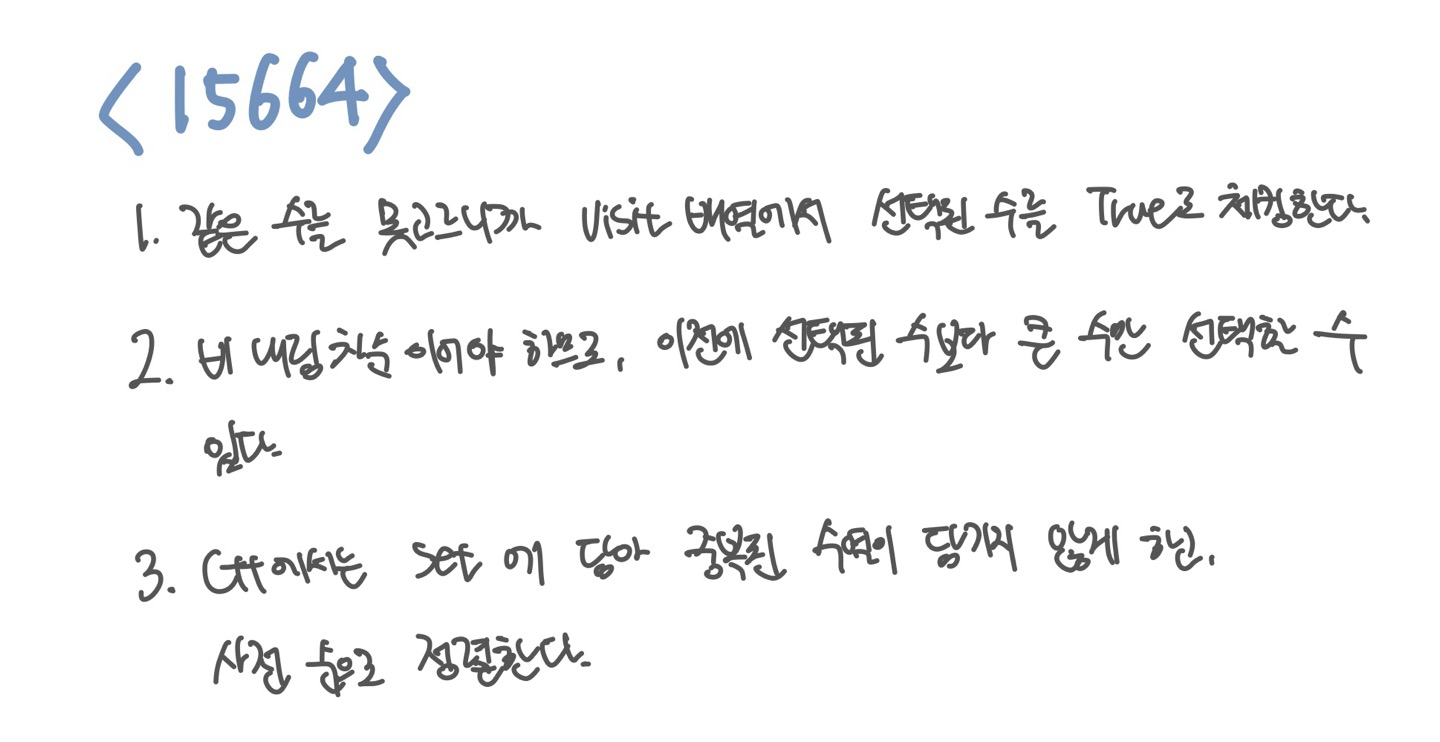 <15664>
1. 같은 수를 못고르니까 visit 배열에서 선택된 수를 True로 체킹한다.
2. 비 내림차순 이어야 하므로, 이전에 선택된 수보다 큰 수만 선택할 수
있다.
3. C++에서는 set 에 담아 중복된 수열이 담기지 않게 한 후,
사전 순으로 정렬한다.